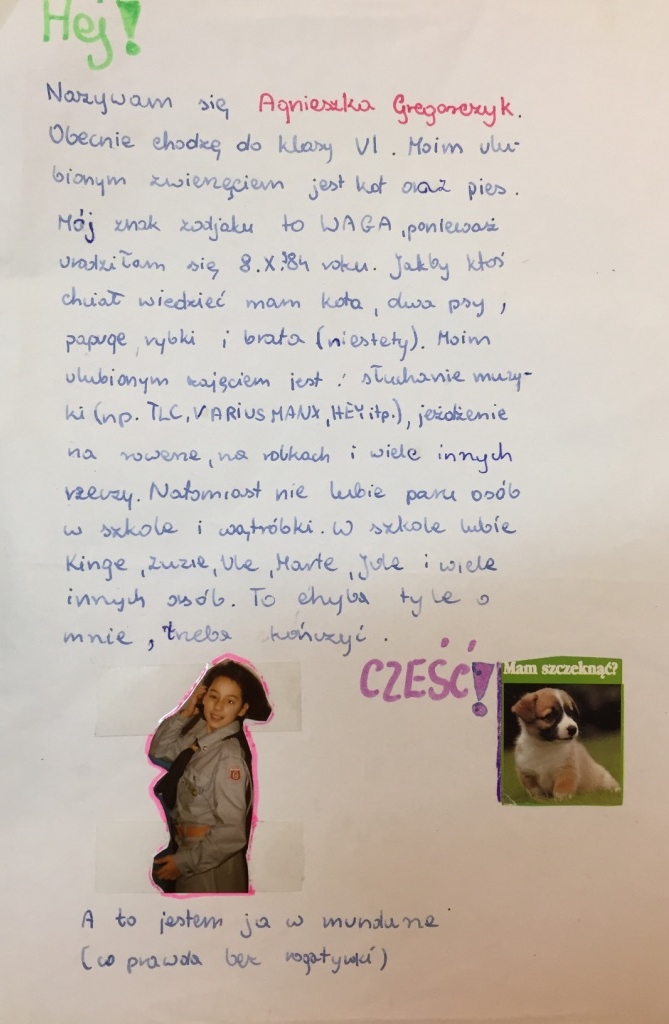 Hej!
Nazywam się Agnieszka Gregorczyk.
Obecnie chodzę do klasy VI. Moim ulu-
bionym zwierzęciem jest kot oraz pies.
Mój znak zodjaku to WAGA, ponieważ
urodziłam się 8.X.'84 roku. Jakby ktoś
chciał wiedzieć mam kota, dwa psy,
papugę, rybki i brata (niestety). Moim
ulubionym zajęciem jest: słuchanie muzy-
ki (np. TLC, VARIUS MANX, HEY itp.), jeżdżenie
na rowerze, na rolkach i wiele innych
rzeczy. Natomiast nie lubie paru osób
w szkole i wątróbki. W szkole lubie
Kinge, Zuzie, Ule, Marte, Jole i wiele
innych osób. To chyba tyle o
mnie, trzeba kończyć.
CZEŚĆ!
Mam szczeknąć?
A to jestem ja w mundurze
(co prawda bez rogatywki)